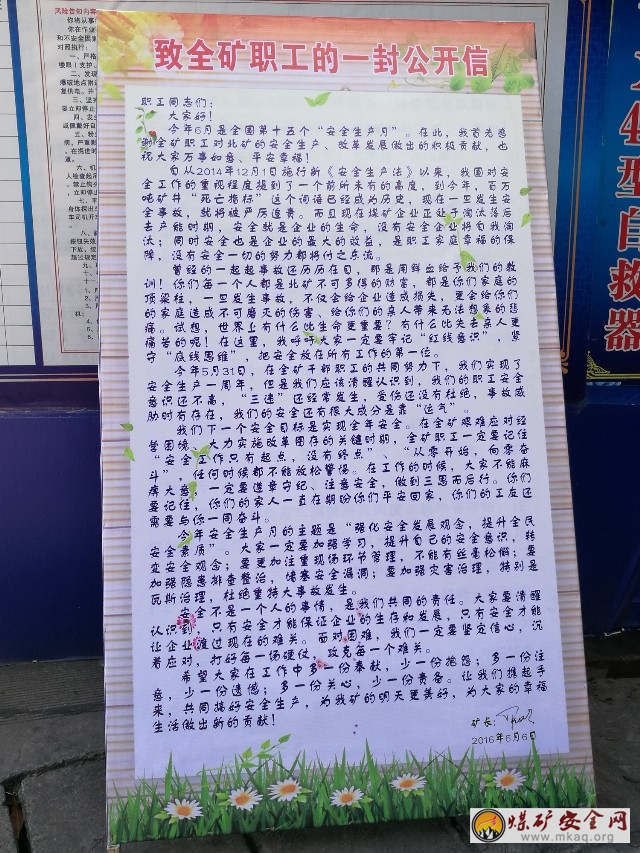 致全矿职工的一封公开信
职工同志们：
大家好！
今年6月是全国第十五个“安全生产月”。在此，我首先感
谢全矿职工对北矿的安全生产、改革发展做出的积极贡献，也
祝大家万事如意、平安幸福！
自从2014年12月1日施行新《安全生产法》以来，我国对安
全工作的重视程度提到了一个前所未有的高度，到今年，百万
吨矿井“死亡指标”这个词语已经成为历史，现在一旦发生安
全事故，就将被严厉追责。而且现在煤矿企业正处于淘汰落后
去产能时期，安全就是企业的生命，没有安全企业将自我淘
汰；同时安全也是企业的最大的效益，是职工家庭幸福的保
障，没有安全一切的努力都将付之点流。
曾经的一起起事故还历历在目，都是用鲜血给予我们的教
训！你们每一个人都是北矿不可多得的财富，都是你们家庭的
顶梁柱，一旦发生事故，不仅会给企业造成损失，更会给你们
的家庭造成不可磨灭的伤害，给你们的亲人带来无法想象的悲
痛。试想，世界上有什么比生命更重要？有什么比失去亲人更
痛苦的呢！在这里，我呼吁大家一定要牢记“红线意识”，紧
守“底线思维”，把安全放在所有工作的第一位。
今年5月31日，在全矿干部职工的共同努力下，我们实现了
安全生产一周年，但是我们应该清醒认识到，我们的职工安全
意识还不高，“三违”还经常发生，受伤还没有杜绝，事故威
胁时有存在，我们的安全还有很大成分是靠“运气”。
我们下一个安全目标是实现全年安全。在全矿艰难应对经
营困境、大力实施改革图存的关键时期，全矿职工一定要记住
“安全工作只有起点，没有终点”、“从零开始，向零奋
斗”，任何时候都不能放松警惕。在工作的时候，大家不能麻
痹大意，一定要遵章守纪、注意安全，做到三思而后行。你们
要记住，你们的家人一直在期盼你们平安回家，你们的工友还
需要与你一同奋斗。
今年安全生产月的主题是“强化安全发展观念，提升全民
安全素质”。大家一定要加强学习，提升自己的安全意识，转
变安全观念；要更加注重现场环节管理，不能有丝毫松懈；要
加强隐患排查整治，堵塞安全漏洞；要加强灾害治理，特别是
瓦斯治理，杜绝重特大事故发生。
安全不是一个人的事情，是我们共同的责任。大家要清醒
认识到，只有安全才能保证企业的生存和发展，只有安全才能
让企业渡过现在的难关。面对困难，我们一定要坚定信心，沉
着应对，打好每一场硬仗，攻克每一个难关。
希望大家在工作中多一份奉献，少一份抱怨；多一份注
意，少一份遗憾；多一份关心，少一份责备。让我们携起手
来，共同搞好安全生产，为我矿的明天更美好，为大家的幸福
生活做出新的贡献！
矿长：
2016年6月6日
型自救器
煤矿安全网
www.mkaq.org